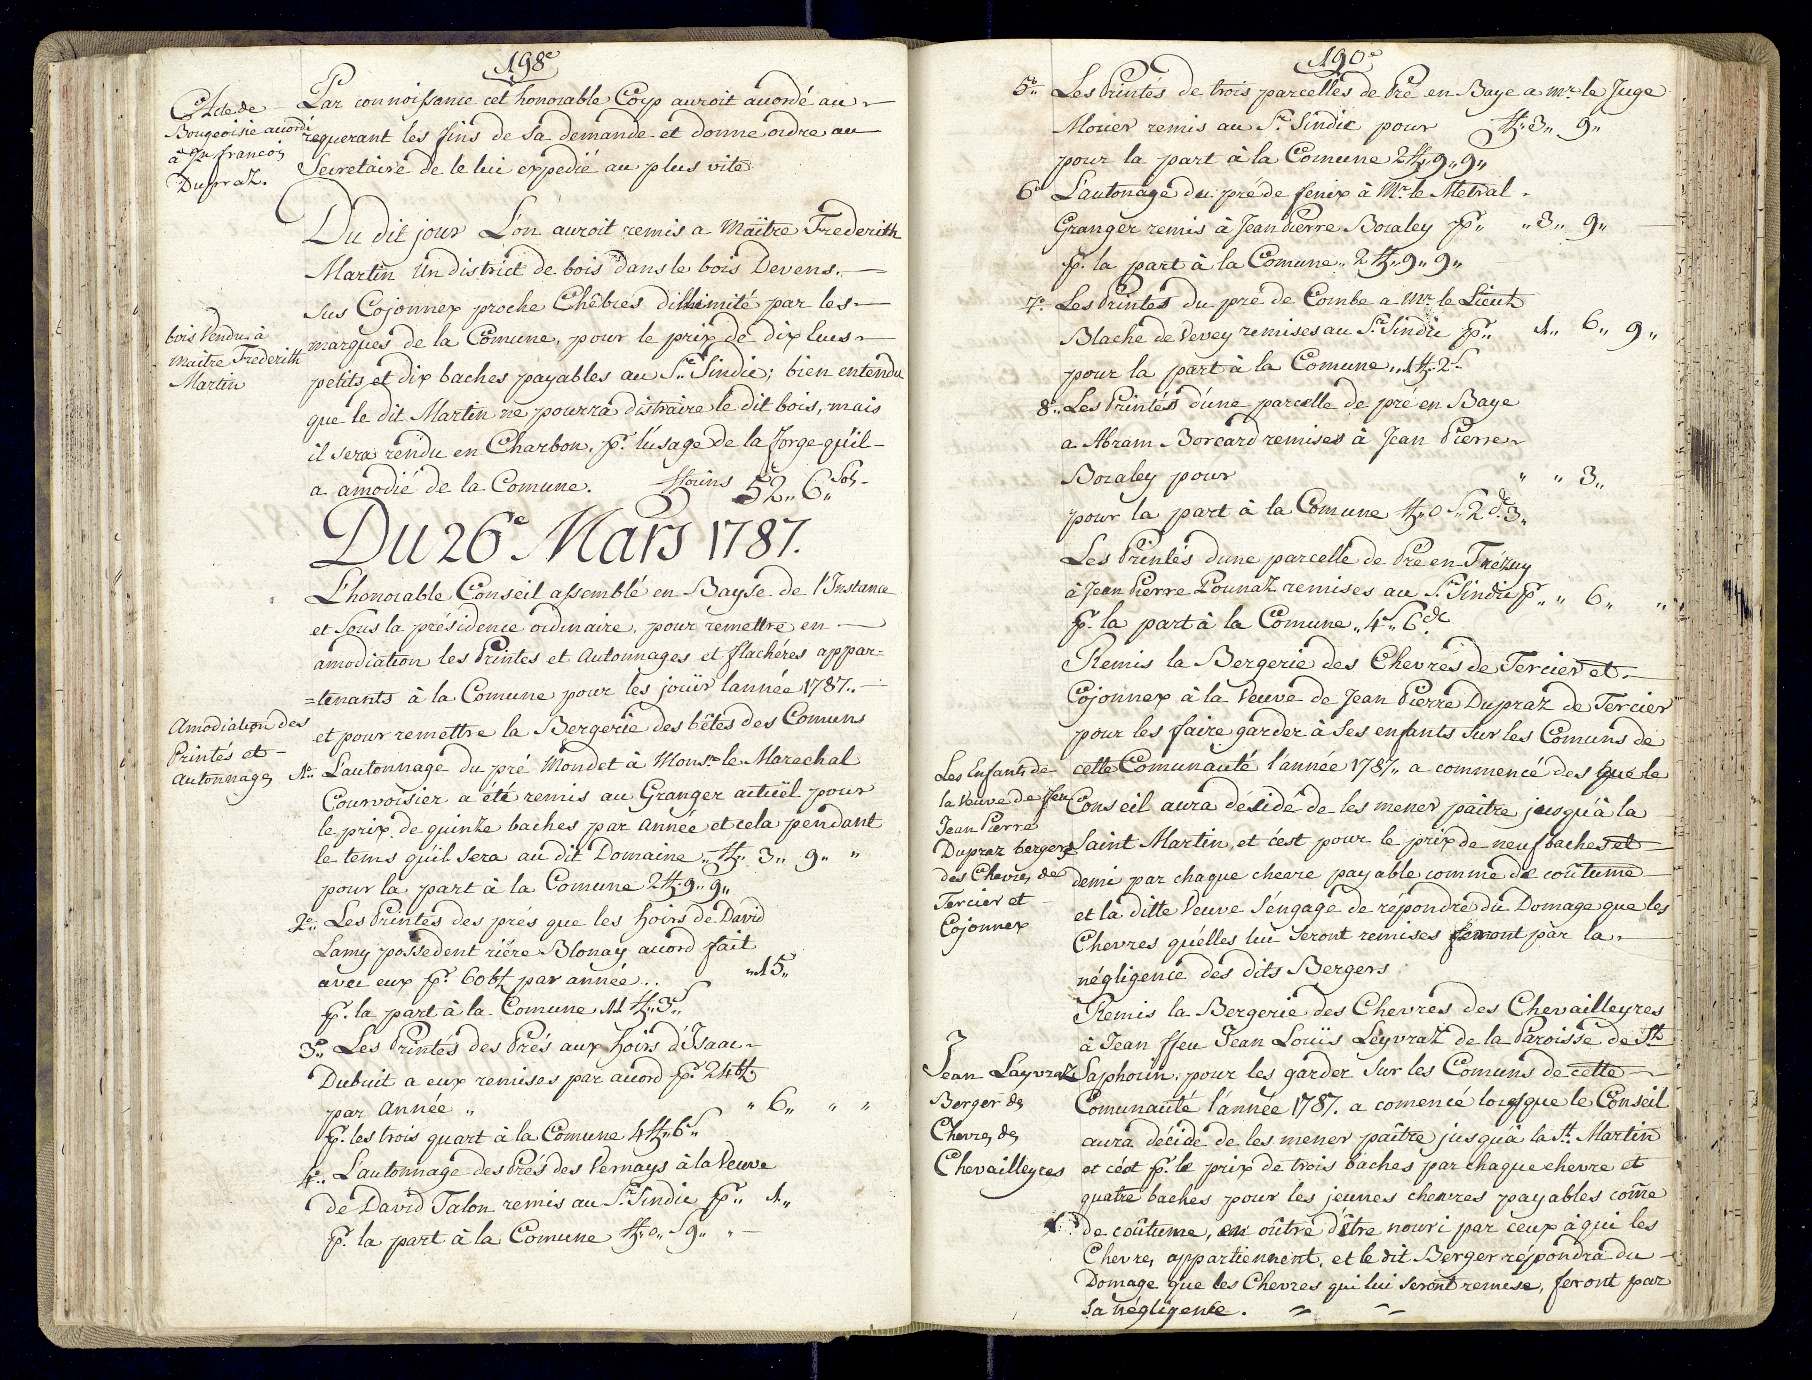 198e
Acte de
Bourgeoisie accordé
à Jn francois
Dupraz.
Par connoissance cet honorable Corp auroit accordé au
requerant les fins de sa demande et donne ordre au
Secretaire de le lui expedié au plus vite.
Du dit jour L'on auroit remis a Maitre Frederith
Martin Un district de bois dans le bois Devens
sus Cojonnex proche Chêbres dillimité par les
bois Vendu à
maitre Frederith
Martin
marques de la Comune, pour le prix de dix Luis
petits et dix baches payables au Sr. Sindic; bien entendu
que le dit Martin ne pourra distraire le dit bois, mais
il sera rendu en Charbon, pr. l'usage de la forge qu'il
a amodié de la Comune. florins 52,, 6,, sols
Du 26e Mars 1787.
L'honorable Conseil assemblé en Bayse de l'Instance
et Sous la présidence ordinaire, pour remettre en
amodiation les Printes et Autonnages et flachéres appar=
=tenants à la Comune pour les jouïr lannée 1787.
et pour remettre la Bergerie des bêtes des Comuns
Amodiation des
Printés et
autonnages
1e. L'autonnage du pré Mondet à Monsr. le Marechal
Courvoisier a été remis au Granger actuël pour
le prix de quinze baches par année et cela pendant
le tems qu'il sera au dit Domaine ,, ff ,, 3 ,, 9 ,, ,,
pour la part à la Comune 2 ff. 9 ,, 9 ,,
2e. Les Printés des prés que les hoirs de David
Lamy possedent riére Blonay acord fait
avec eux pr. 60 bz par année .. ,, 15 ,,
pr. la part à la Comune 11 ff ,, 3 s
3e. Les Printés des Prés aux hoirs d'Isaac
Dubuit a eux remises par acord pr. 24 bz
par Année ,, ,, 6 ,, ,, ,,
pr. les trois quart à la Comune 4 ff ,, 6 s
4e. L'autonnage des Prés des Vernays à la Veuve
de David Talon remis au Sr. Sindic pr. ,, 1 ,,
pr. la part à la Comune ff ,, 0 ,, s 9 ,, ,,
190e
5e. Les Printés de trois parcelles de Pré en Baye a mr. le Juge
Morier remis au Sr. Sindic pour ff ,, 3 ,, 9 ,,
pour la part à la Comune 2 ff ,, 9 ,, 9 ,,
6e L'autonage du pré de fenix à Mr. le Metral
Granger remis à Jean Pierre Boraley pr. ,, 3 ,, 9 ,,
pr. la part à la Comune ,, 2 ff ,, 9 ,, 9 ,,
7e. Les Printés du pré de Combe a mr. le Lieut
Blache de Vevey remises au Sr. Sindic pr. 1 ,, 6 ,, 9 ,,
pour la part à la Comune ,, 1 ff. 2 s
8e. Les Printés d'une parcelle de pré en Baye
a Abram Borcard remises à Jean Pierre
Boraley pour ,, ,, 3 ,,
pour la part à la Comune ff ,, 0 s ,, 2 d. 3 ,,
Les Printés d'une parcelle de Pré en Trézuy
à Jean Pierre Pounaz remises au Sr. Sindic pr. ,, ,, 6 ,, ,,
pr. la part à la Comune ,, 4 s ,, 6 de
Remis la Bergerie des Chevrés de Tercier et
Cojonnex à la Veuve de Jean Pierre Dupraz de Tercier
pour les faire garder à Ses enfants Sur les Comuns de
cette Comunauté l'année 1787 ,, a commencé des que le
Les Enfants de
la Veuve de feu
Jean Pierre
Dupraz bergers
des Chevres de
Tercier et
Cojonnex
Conseil aura décidé de les mener paitre jusqu'à la
Saint Martin, et c'est pour le prix de neuf baches et
demi par chaque chevre payable comme de coûtume
et la ditte Veuve S'engage de répondre du Domage que les
Chevres qu'elles lui Seront remises feront par la
négligence des dits Bergers
Remis la Bergerie des Chevres des Chevailleyres
à Jean ffeu Jean Louïs Leyvraz de la Paroisse de St
Jean Layvraz
Berger des
Chevres des
Chevailleyres
Saphorin, pour les garder Sur les Comuns de cette
Comunauté l'année 1787. a comencé lorsque le Conseil
aura décidé de les mener paître jusqu'à la St. Martin
et cést pr. le prix de trois baches par chaque chevre et
quatre baches pour les jeunes chevres payables comẽ
de coûtume, en oûtre d'être nouri par ceux à qui les
Chevres appartiennent, et le dit Berger répondra du
Domage que les Chevres qui lui seront remise, feront par
sa négligence.